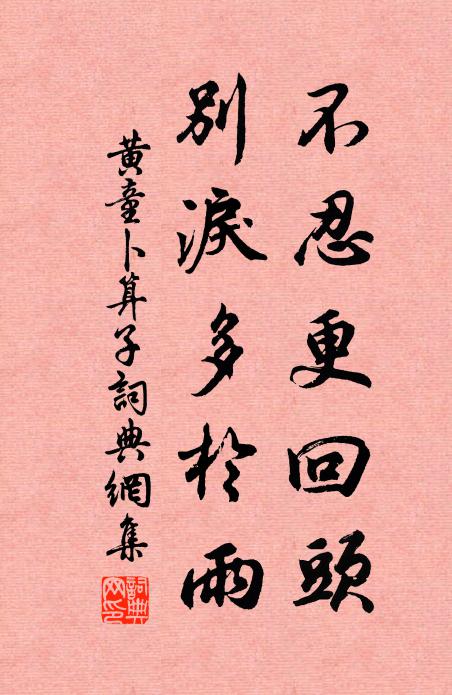 不忍更回頭
別淚多於雨
黃童卜算子詞典網集
詞典網印